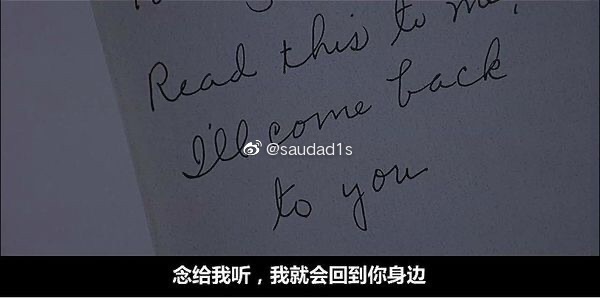 Read this to me,
I'll come back
to you
@saudad1s
念给我听，我就会回到你身边